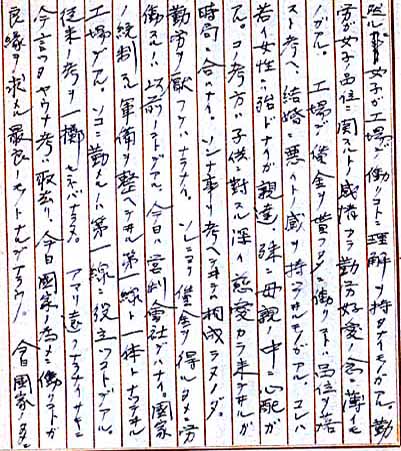 女子ガ工場デ働クコトニ理解ヲ持タナイモノガアル。勤
労ガ女子ノ品位ニ関スルトノ感情カラ勤労好愛ノ念ニ薄キモ
ノガアル。工場デ賃金ヲ貰フタメニ働クコトハ品位ヲ落
スト考ヘ、結婚ニ悪イトノ感ヲ持ツモノガアル。コレハ
若イ女性ニハ殆ドナイガ親達、殊ニ母親ノ中ニ心配ガ
アル。コノ考方ハ子供ニ対スル深イ慈愛カラ来テヰルガ
時局ニ合ハナイ。ソンナ事ヲ考ヘテヰテハ相成ラヌノダ。
勤労ヲ厭フテハナラナイ。ソレニヨリ賃金ヲ得ルタメニ労
働スルハ以前ノコトデアル。今日ハ営利会社デハナイ。国家
ノ統制下軍備ヲ整ヘテヰル第一線ト一体トナッテヰル
工場デアル。ソコニ勤メルハ第一線ノ役ニ立ツコトデアル。
従来ノ考ヲ一擲セネバナラヌ。アマリ遠クナラナイサキニ
今言ッタヤウナ考ハ取去リ、今日国家ノ為メニ働クコトガ
良縁ヲ求メル最良ノモトナルデアラウ。今日国家ノタメ